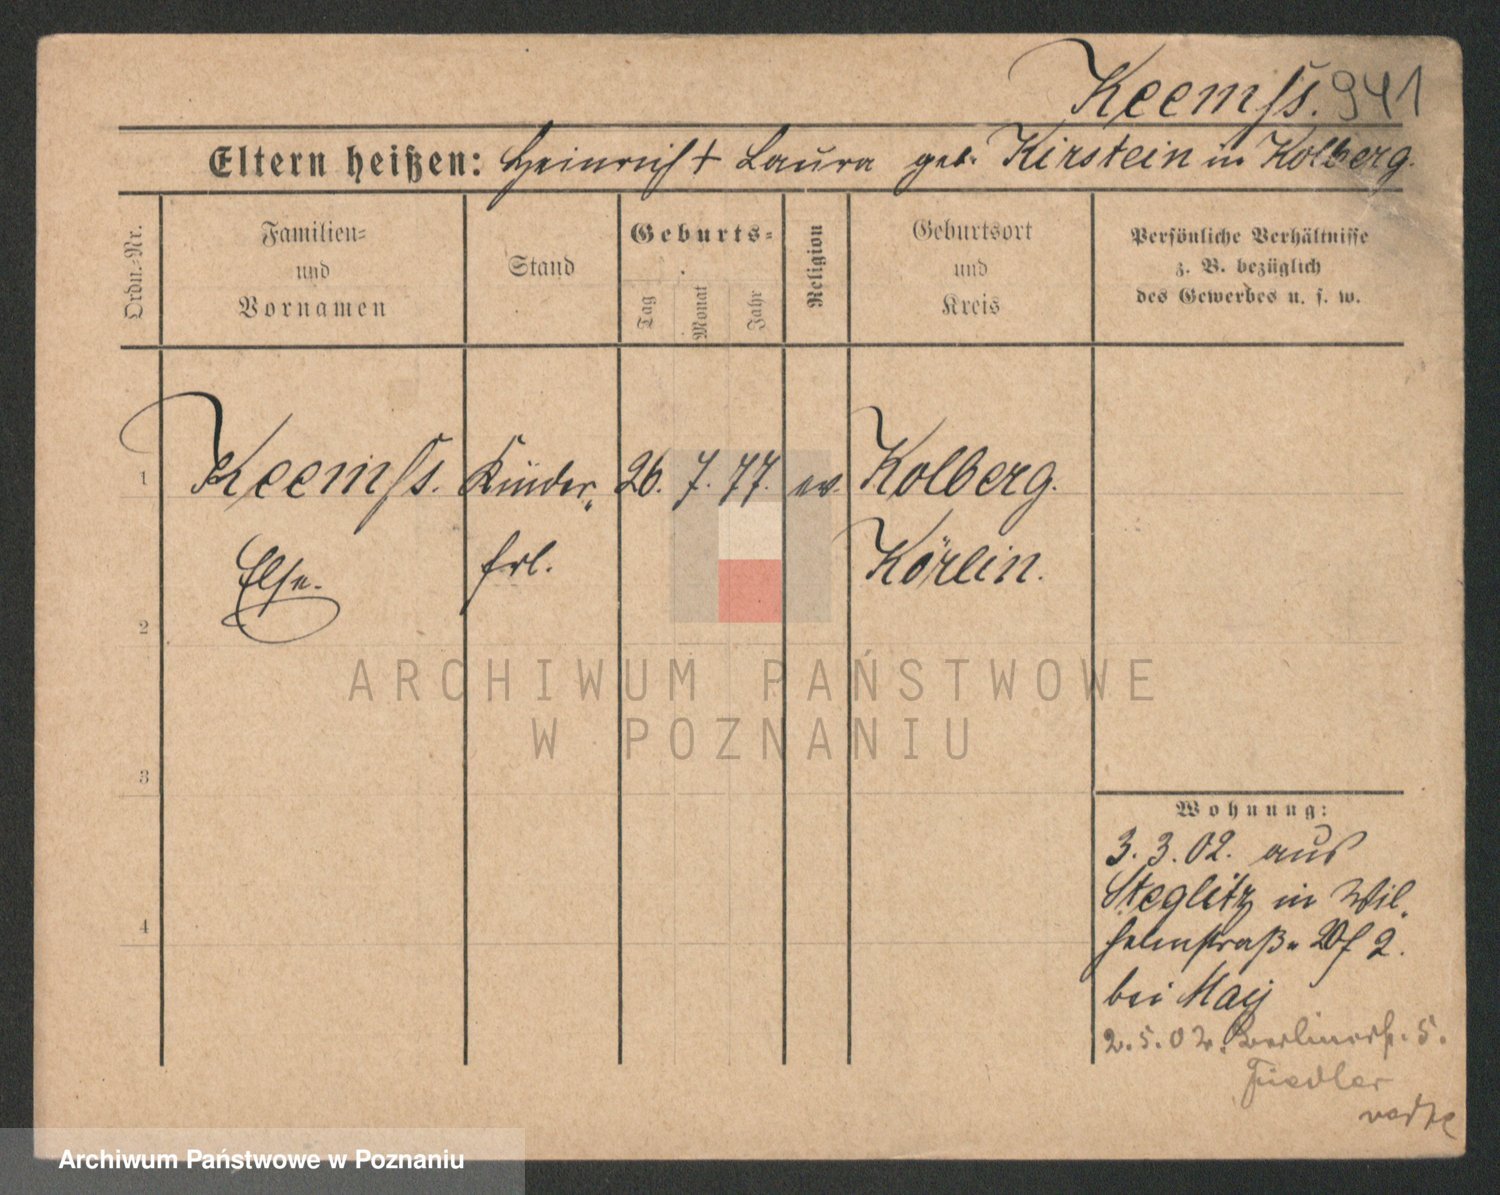 Keemss. 941
Eltern heißen: Heinrich + Laura geb. Kirstein in Kolberg.
Ordn.-Nr.
Familien-
und
Vornamen
Stand
Geburts-
Tag
Monat
Jahr
Religion
Geburtsort
und
Kreis
Persönliche Verhältnisse
z. B. bezüglich
des Gewerbes u. s. w.
1 Keemss. Kinder- 26. 7. 77. ev. Kolberg.
Else. frl. Körlin.
2
3
4
Wohnung:
3. 3. 02. aus
Steglitz in Wil-
helmstraß. 2.
bei May
2. 5. 02. Berlinerstr. 5.
Fiedler
ARCHIWUM PAŃSTWOWE
W POZNANIU
Archiwum Państwowe w Poznaniu